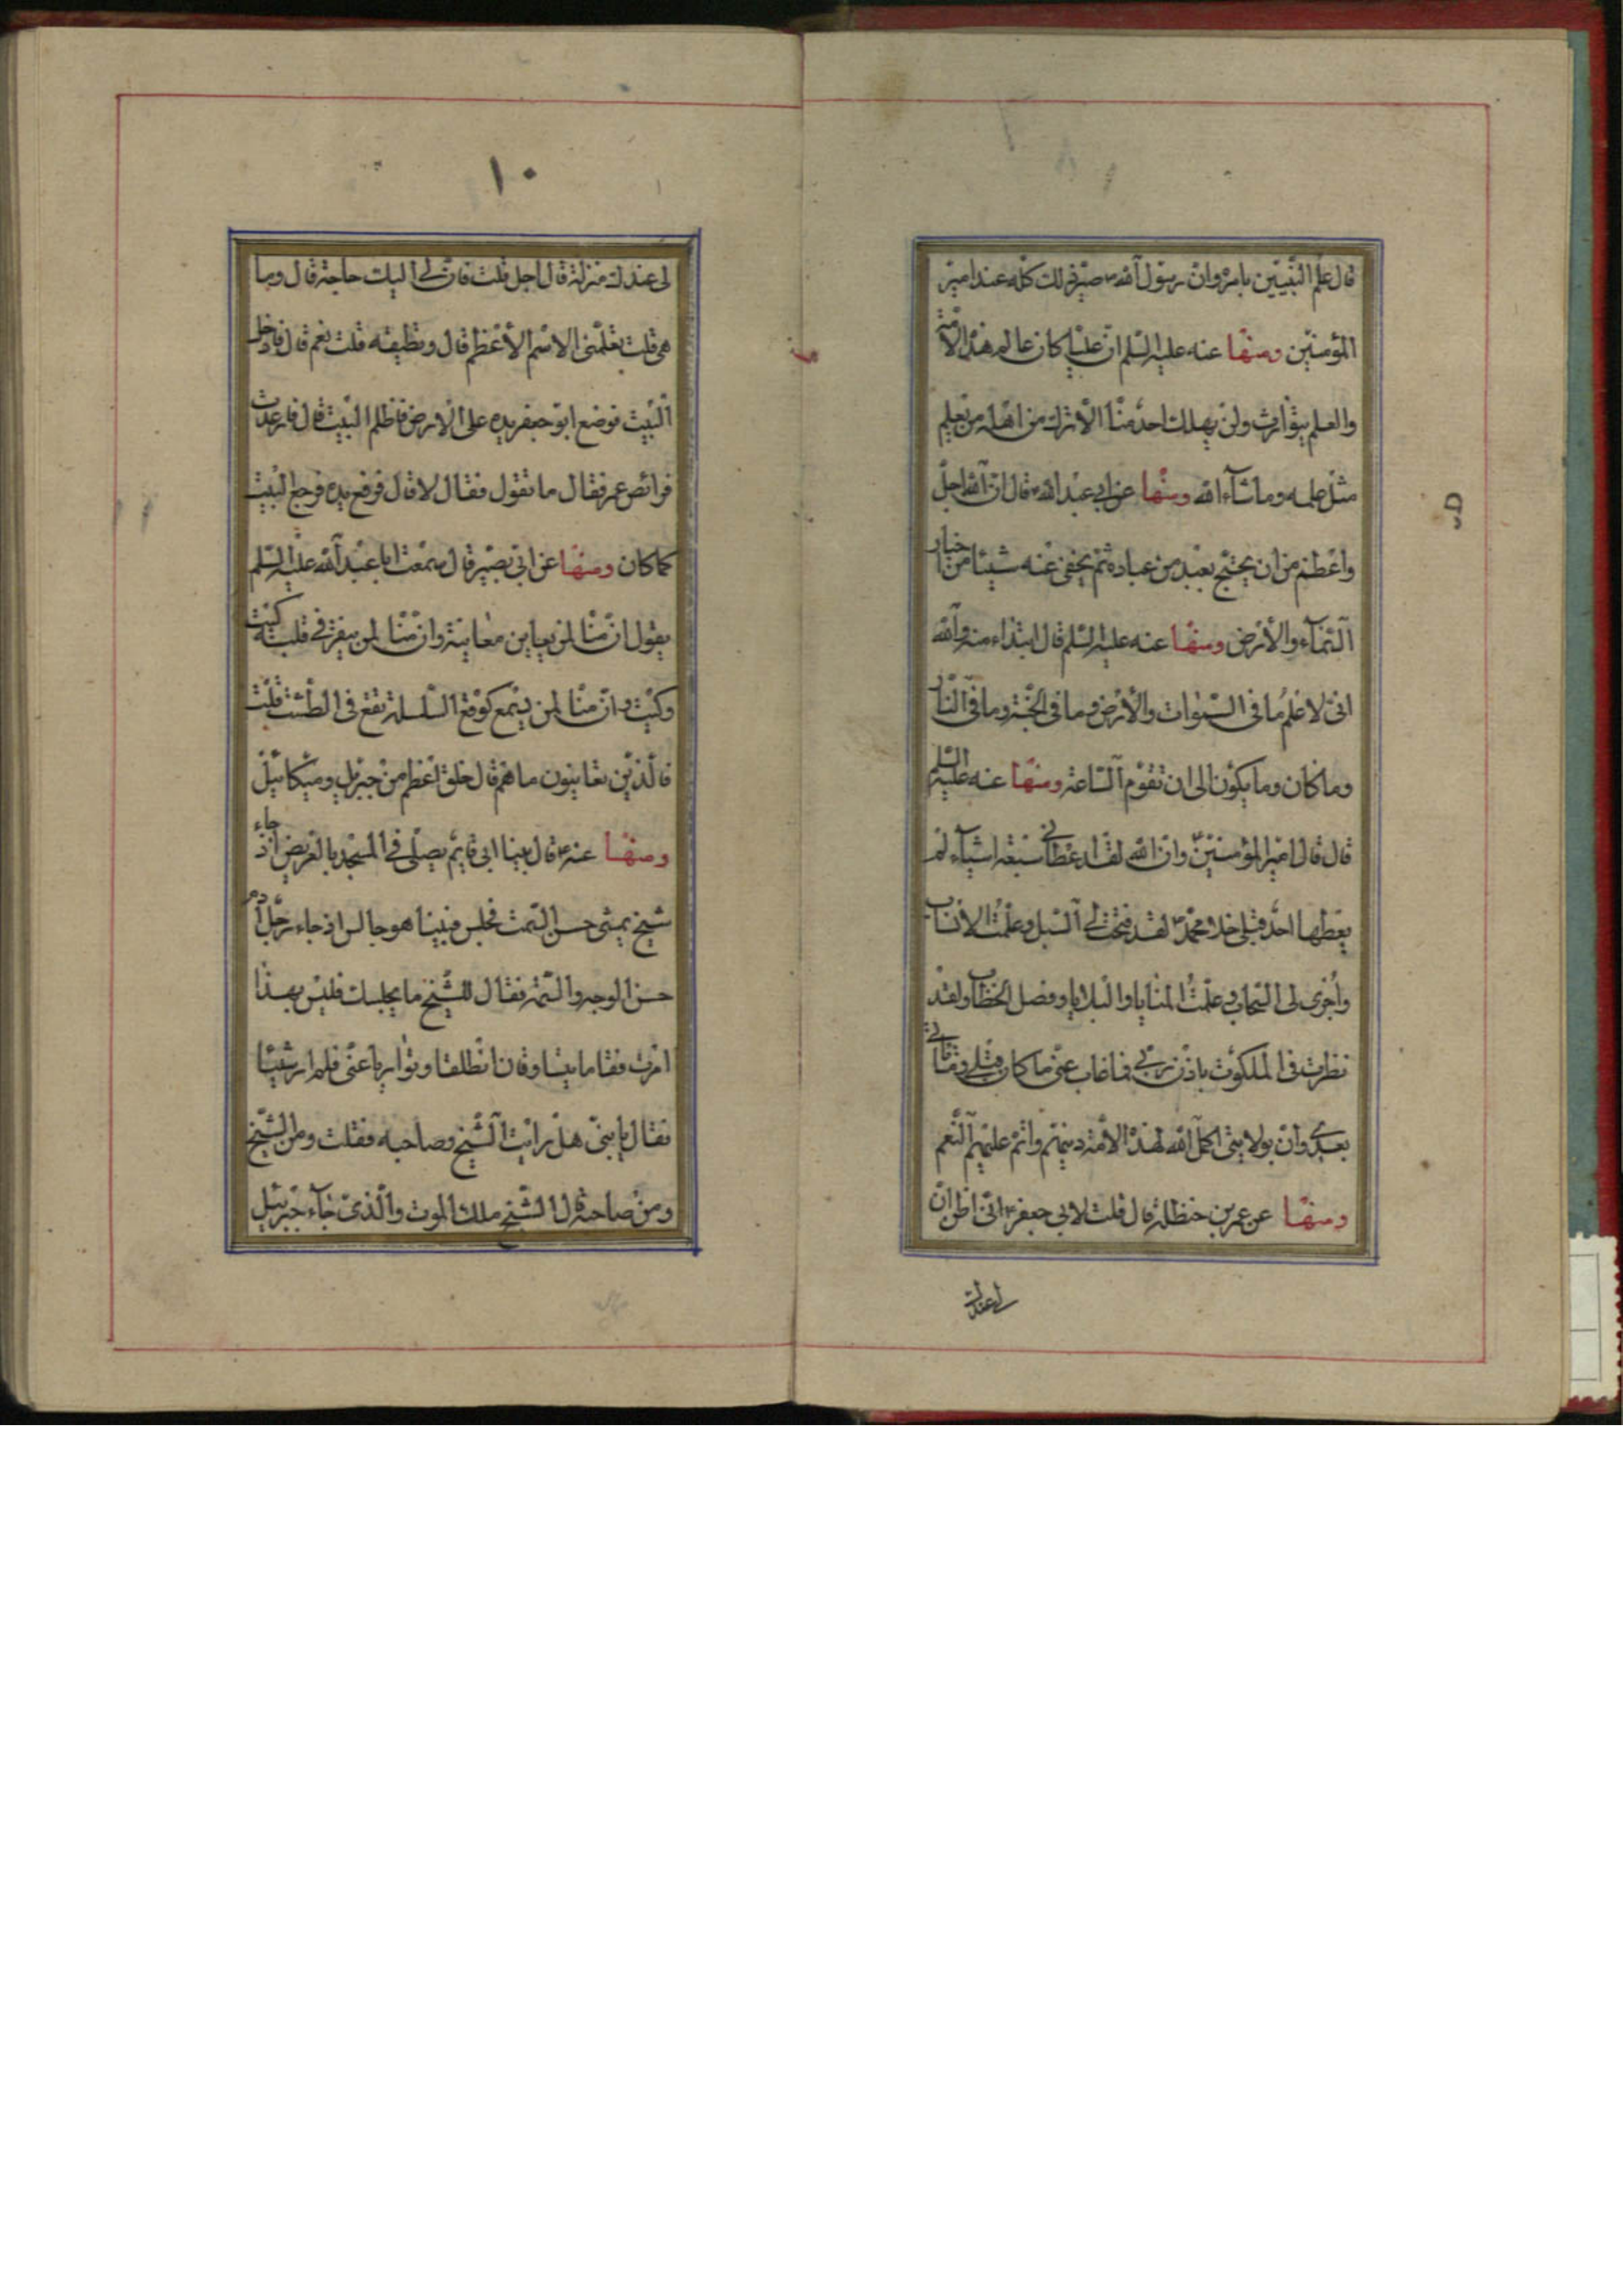 قال علم النبيين باسره وان رسول الله ص صير ذلك كله عند امير
المؤمنين ومنها عنه عليه السلم ان عليا كان عالم هذه الامة
والعلم يتوارث ولن يهلك احد منا الا ترك من اهله من يعلم
مثل علمه وما شاء الله ومنها عن ابي عبد الله ع قال ان الله اجل
واعظم من ان يحتج بعبد من عباده ثم يخفى عنه شيئا من اخبار
السماء والأرض ومنها عنه عليه السلم قال ابتداء منه والله
انى لاعلم ما فى السموات والأرض وما فى الجنة وما فى النار
وما كان وما يكون الى ان تقوم الساعة ومنها عنه عليه السلم
قال قال امير المؤمنين وان الله لقد اعطانى سبعة اشياء لم
يعطها احد قبلى خلا محمد ص لقد فتحت لى السبل وعلمت الانساب
واجرى لى السحاب وعلمت المنايا والبلايا وفصل الخطاب ولقد
نظرت فى الملكوت باذن ربى فما غاب عنى ما كان قبلى وما يأتى
بعدى وان بولايتى اكمل الله لهذه الامة دينهم واتم عليهم النعم
ومنها عن عمر بن حنظلة قال قلت لابى جعفر ع انى اظن ان
لى عندك
١٠
لى عندك منزلة قال اجل قلت فان لى اليك حاجة قال وما
هى قلت تعلمنى الاسم الأعظم قال وتطيقه قلت نعم قال فادخل
البيت فوضع ابو جعفر يده على الارض فاظلم البيت قال فارعدت
فرائص عمر فقال ما تقول فقال لا قال فرفع يده فرجع البيت
كما كان ومنها عن ابى بصير قال سمعت ابا عبد الله عليه السلم
يقول ان منا لمن يعاين معاينة وان منا لمن ينقر فى قلبه كيت
وكيت وان منا لمن يسمع كوقع السلسلة تقع فى الطشت قلت
فالذين تعاينون ما هم قال خلق اعظم من جبريل وميكائيل
ومنها عنه ع قال بينا ابى قايم يصلى فى المسجد بالعريض اذ جاء
شيخ يمشى حسن السمت فجلس فبينا هو جالس اذ جاء رجل آدم
حسن الوجه والسمة فقال للشيخ ما يجلسك فليس بهذا
امرت فقاما وانطلقا وتواريا عنى فلم ار شيئا
فقال يا بنى هل رايت الشيخ وصاحبه فقلت ومن الشيخ
ومن صاحبه قال الشيخ ملك الموت والذى جاء جبرئيل